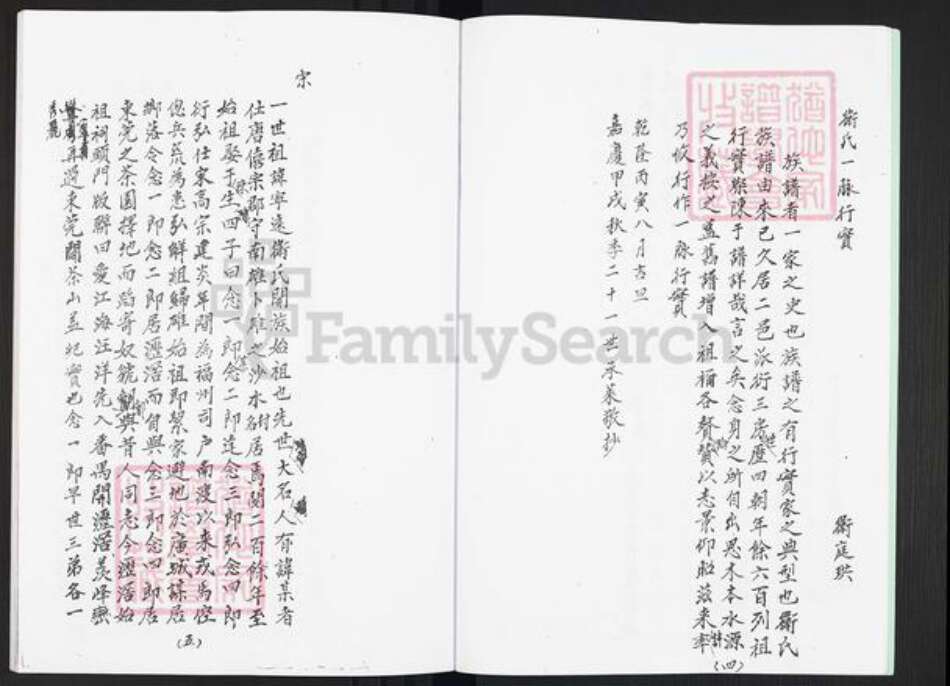 衛氏一脉行實
衛庭珙
族譜者一家之史也族譜之有行實家之典型也衛氏
族譜由來已久居二邑派衍三房歷四朝年餘六百列祖
行實縣陳于譜詳哉言之矣念身之所自出思木本水源
之義按之蓋舊譜增入祖禰各賛以志景仰昭茲来
乃攸行作一脉行實
乾隆丙寅八月吉旦
嘉慶甲戌秋季二十一世承萊敬抄
(四)
宋
一世祖諱寧遠衛氏開族始祖也先世大名人有諱某者
仕唐僖宗郡守南雄卜雄之沙水村居焉閱二百餘年至
始祖娶生四子曰念一郎念二郎達念三郎弘念四郎
衍弘仕宋高宗建炎年間為福州司户南渡以來戎馬倥
偬兵荒為患弘解組歸雄始祖即挈家避地於廣城謀居
鄉落令念一郎念二郎居瀝滘而自與念三郎念四郎居
東莞之茶園擇地而蹈寄奴與昔人同志今瀝滘始
祖祠頭門版聯曰愛江海汪洋先入番禺開瀝滘羨峰巒
秀麗再過東莞闢茶山蓋紀實也念一郎早世三弟各一
(五)
FamilySearch